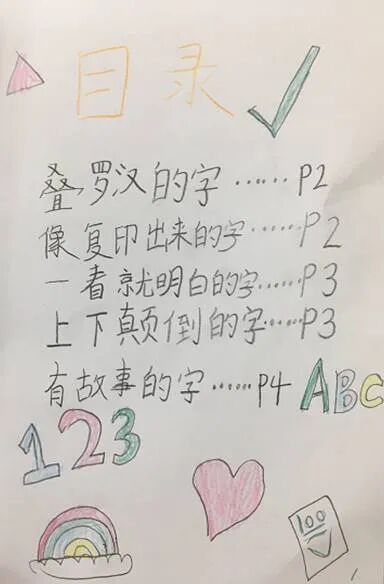 目录
叠罗汉的字……P2
像复印出来的字……P2
一看就明白的字……P3
上下颠倒的字……P3
有故事的字……P4
ABC
123
100